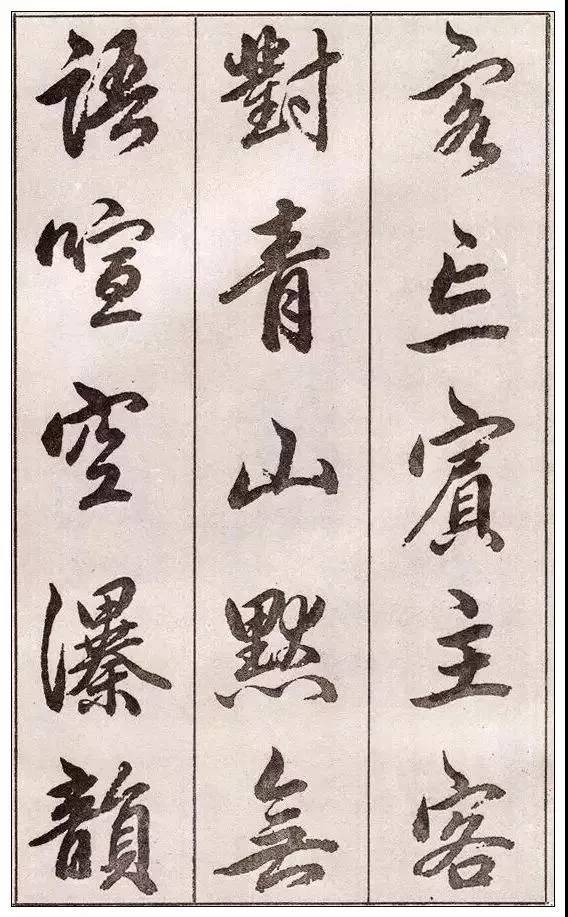 客亡賓主客
對青山默無
語喧空瀑韻